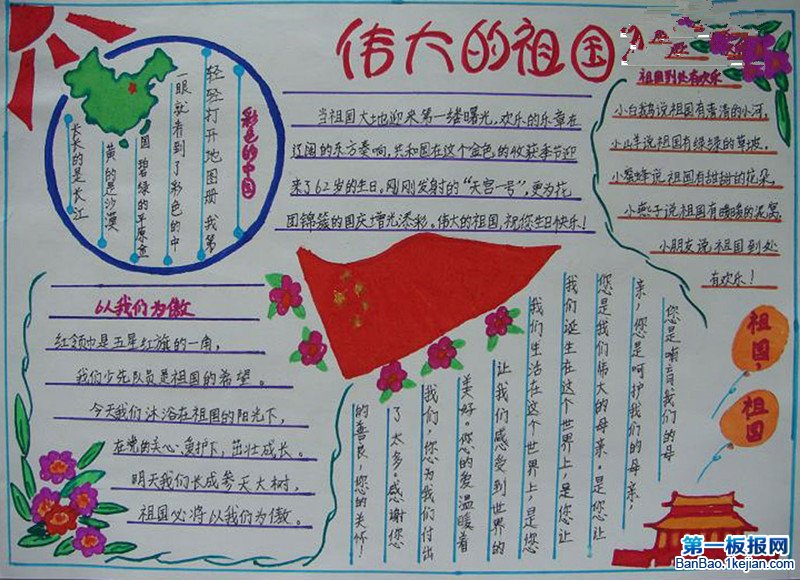 伟大的祖国
彩色的中国
轻轻打开地图册 我第
一眼就看到了彩色的中
国 碧绿的平原金
黄的是沙漠
长长的是长江
当祖国大地迎来第一缕曙光，欢乐的乐章在
辽阔的东方奏响，共和国在这个金色的收获季节迎
来了62岁的生日，刚刚发射的“天宫一号”，更为花
团锦簇的国庆增光添彩。伟大的祖国，祝您生日快乐！
祖国到处有欢乐
小白鹅说祖国有清清的小河，
小山羊说祖国有绿绿的草坡。
小蜜蜂说祖国有甜甜的花朵，
小燕子说祖国有暖暖的泥窝，
小朋友说祖国到处
有欢乐！
以我们为傲
红领巾是五星红旗的一角，
我们少先队员是祖国的希望。
今天我们沐浴在祖国的阳光下，
在党的关心、爱护下，茁壮成长。
明天我们长成参天大树，
祖国必将以我们为傲。
您是哺育我们的母
亲，您是呵护我们的母亲，
您是我们伟大的母亲。是您让
我们诞生在这个世界上，是您让
我们生活在这个世界上，是您
让我们感受到世界的
美好。您的爱温暖着
我们，您为我们付出
了太多。感谢您
的善良，您的关怀！
祖国，
祖国
第一板报网
BanBao.1kejian.com